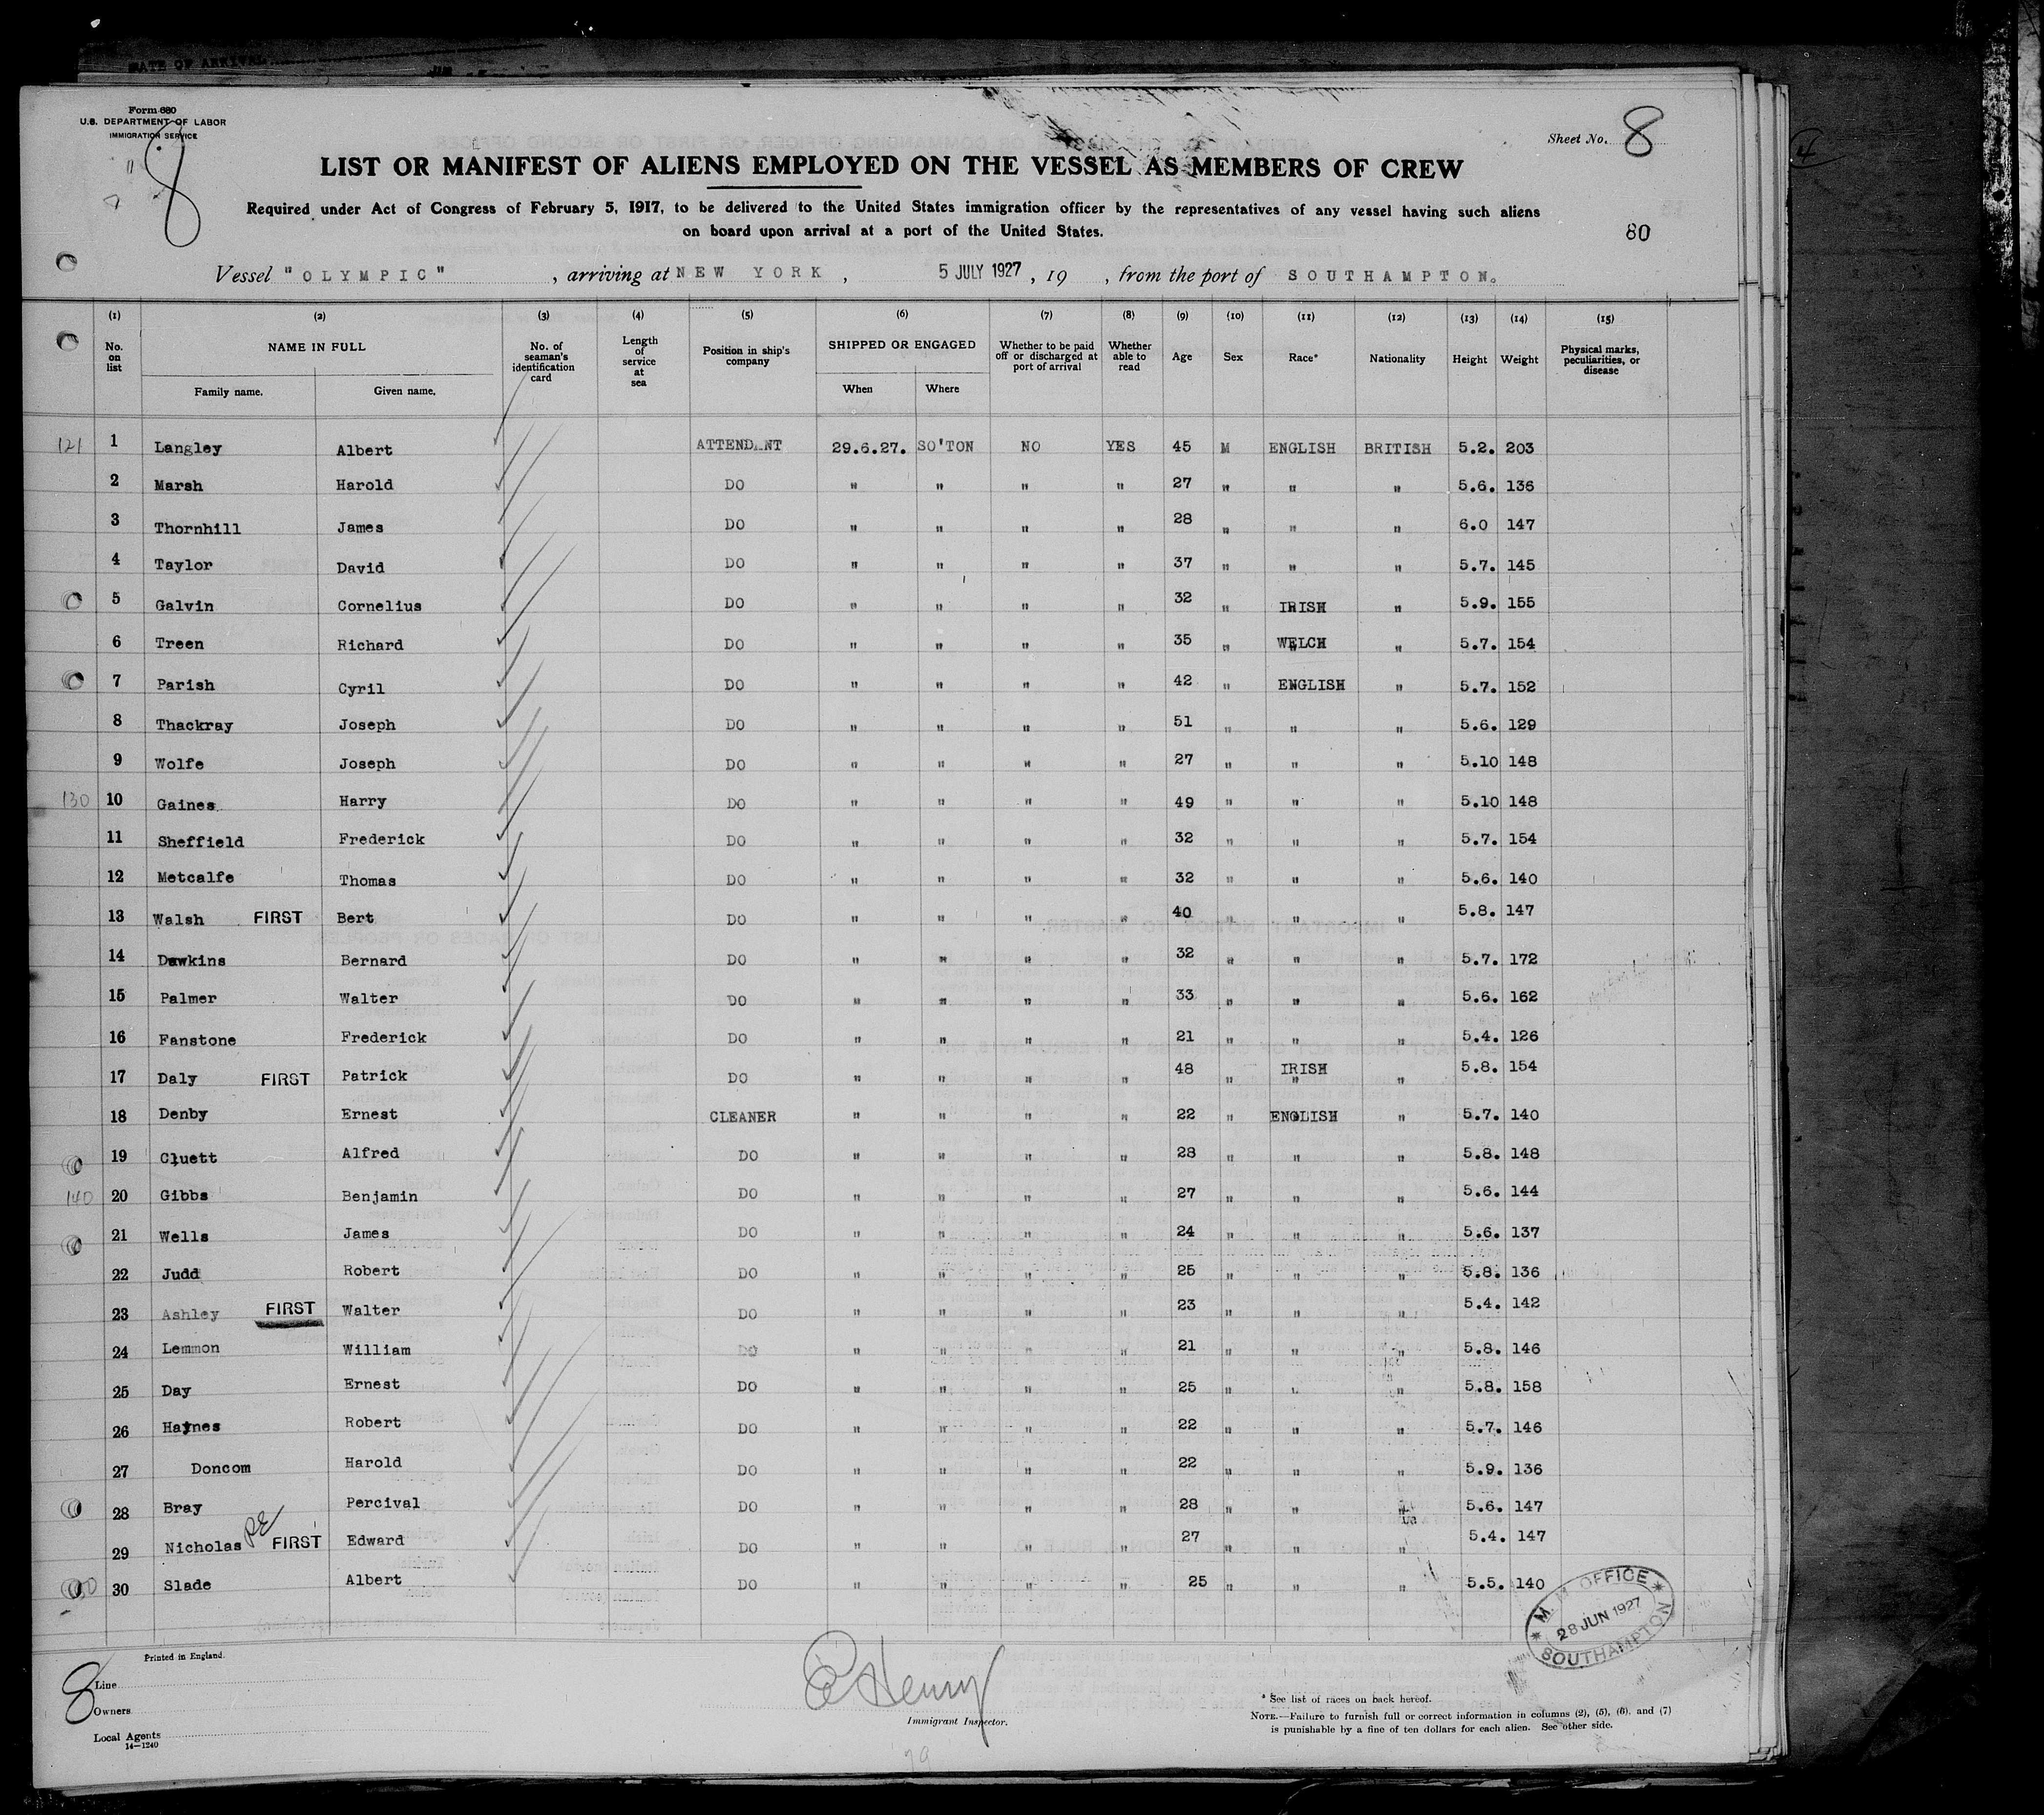 DATE OF ARRIVAL
Form 680
U.S. DEPARTMENT OF LABOR
IMMIGRATION SERVICE
8
Sheet No. 8
LIST OR MANIFEST OF ALIENS EMPLOYED ON THE VESSEL AS MEMBERS OF CREW
Required under Act of Congress of February 5, 1917, to be delivered to the United States immigration officer by the representatives of any vessel having such aliens
on board upon arrival at a port of the United States.
80
Vessel "OLYMPIC" , arriving at NEW YORK , 5 JULY 1927 , 19 , from the port of SOUTHAMPTON.
(1) (2) (3) (4) (5) (6) (7) (8) (9) (10) (11) (12) (13) (14) (15)
No. on list NAME IN FULL Family name. Given name. No. of seaman's identification card Length of service at sea Position in ship's company SHIPPED OR ENGAGED When Where Whether to be paid off or discharged at port of arrival Whether able to read Age Sex Race* Nationality Height Weight Physical marks, peculiarities, or disease
121 1 Langley Albert ATTENDANT 29.6.27. SO'TON NO YES 45 M ENGLISH BRITISH 5.2. 203
2 Marsh Harold DO " " " " 27 " " " 5.6. 136
3 Thornhill James DO " " " " 28 " " " 6.0 147
4 Taylor David DO " " " " 37 " " " 5.7. 145
5 Galvin Cornelius DO " " " " 32 " IRISH " 5.9. 155
6 Treen Richard DO " " " " 35 " WELCH " 5.7. 154
7 Parish Cyril DO " " " " 42 " ENGLISH " 5.7. 152
8 Thackray Joseph DO " " " " 51 " " " 5.6. 129
9 Wolfe Joseph DO " " " " 27 " " " 5.10 148
130 10 Gaines Harry DO " " " " 49 " " " 5.10 148
11 Sheffield Frederick DO " " " " 32 " " " 5.7. 154
12 Metcalfe Thomas DO " " " " 32 " " " 5.6. 140
13 Walsh FIRST Bert DO " " " " 40 " " " 5.8. 147
14 Dawkins Bernard DO " " " " 32 " " " 5.7. 172
15 Palmer Walter DO " " " " 33 " " " 5.6. 162
16 Fanstone Frederick DO " " " " 21 " " " 5.4. 126
17 Daly FIRST Patrick DO " " " " 48 " IRISH " 5.8. 154
18 Denby Ernest CLEANER " " " " 22 " ENGLISH " 5.7. 140
19 Cluett Alfred DO " " " " 28 " " " 5.8. 148
140 20 Gibbs Benjamin DO " " " " 27 " " " 5.6. 144
21 Wells James DO " " " " 24 " " " 5.6. 137
22 Judd Robert DO " " " " 25 " " " 5.8. 136
23 Ashley FIRST Walter DO " " " " 23 " " " 5.4. 142
24 Lemmon William DO " " " " 21 " " " 5.8. 146
25 Day Ernest DO " " " " 25 " " " 5.8. 158
26 Haynes Robert DO " " " " 22 " " " 5.7. 146
27 Doncom Harold DO " " " " 22 " " " 5.9. 136
28 Bray Percival DO " " " " 28 " " " 5.6. 147
29 Nicholas FIRST Edward DO " " " " 27 " " " 5.4. 147
30 Slade Albert DO " " " " 25 " " " 5.5. 140
M.M. OFFICE
28 JUN 1927
SOUTHAMPTON
Printed in England.
8
Line
Owners
Local Agents
14—1240
Henry
Immigrant Inspector.
* See list of races on back hereof.
NOTE.—Failure to furnish full or correct information in columns (2), (5), (6), and (7)
is punishable by a fine of ten dollars for each alien. See other side.